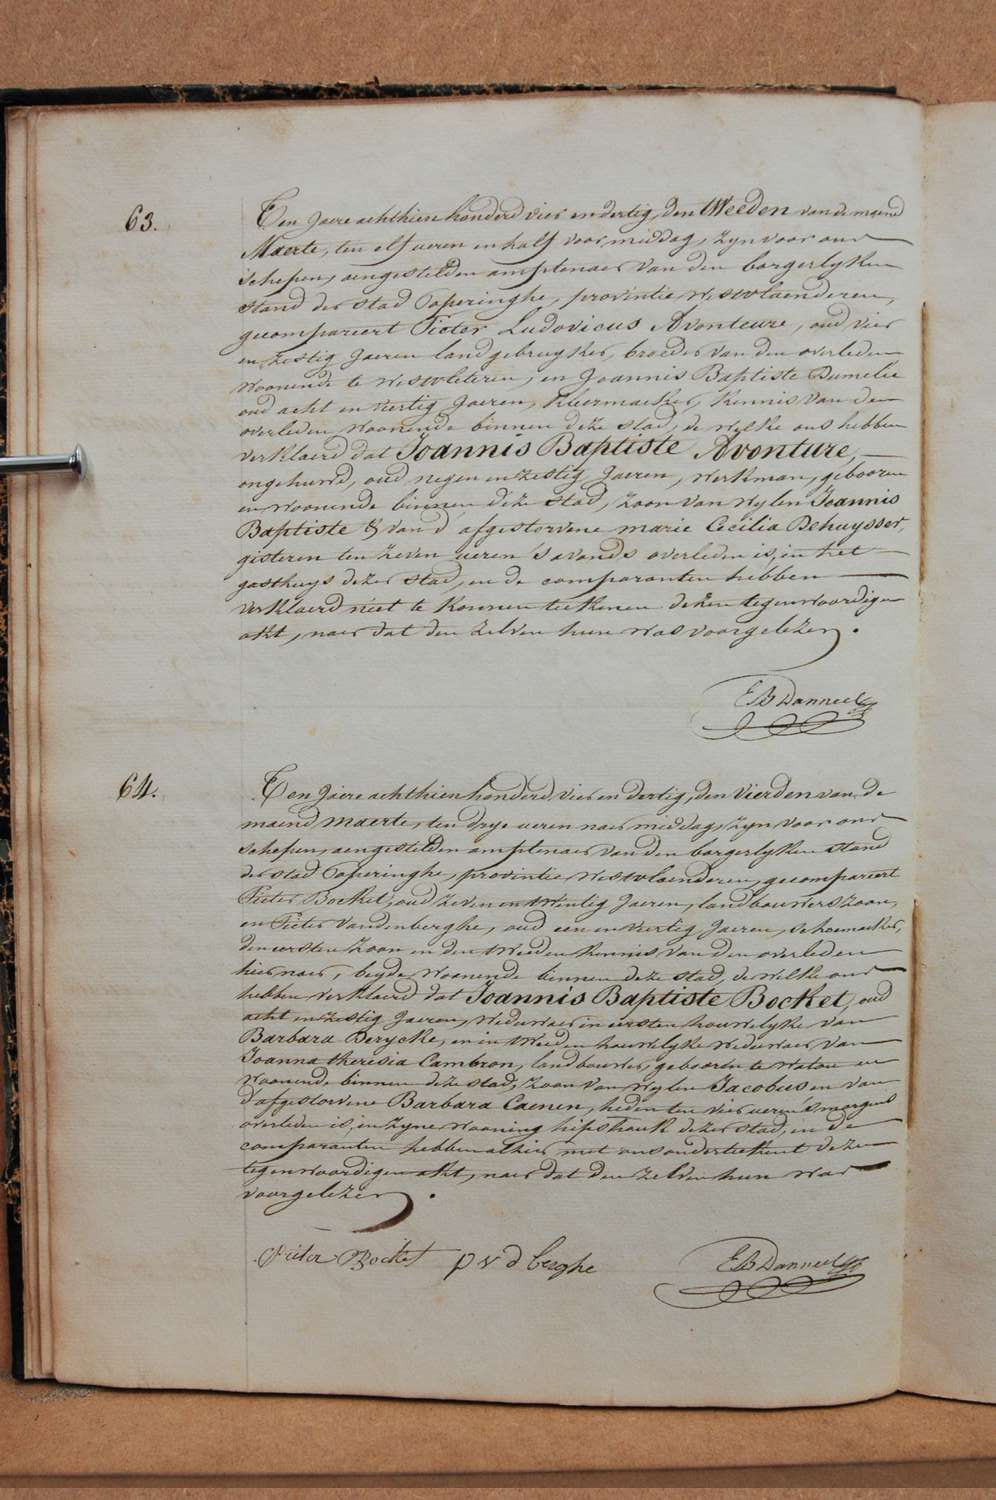 63.
Ten Jaere achthien honderd vier en dertig, den tWeeden van de maend
Maerte, ten elf ueren en half voor middag, zyn voor ons
schepen, aengestelden amptenaer van den borgerlyken
stand der stad Poperinghe, provintie Westvlaenderen,
gecompareert Pieter Ludovicus Avonteure, oud vier
en zestig Jaeren landgebruyker, broeder van den overleden
woonende te Westvleteren, en Joannis Baptiste Dumelie
oud acht en viertig Jaeren, kleermaeker, kennis van den
overleden, woonende binnen deze stad, de welke ons hebben
verklaerd dat Joannis Baptiste Avonture,
ongehuwd, oud negen en zestig Jaeren, werkman, gebooren
en woonende binnen deze stad, zoon van wylen Joannis
Baptiste & van d'afgestorvene marie Cecilia Dehuysser,
gisteren ten zeven ueren s'avonds overleden is, in het
gasthuys dezer stad, en de comparanten hebben
verklaerd niet te konnen teekenen dezen tegenwoordigen
akt, naer dat den zelven hun was voorgelezen.
EB Danneel
64.
Ten Jaere achthien honderd vier en dertig, den vierden van de
maend maerte, ten drye ueren naer middag, zyn voor ons
schepen, aengestelden amptenaer van den borgerlyken stand
der stad Poperinghe, provintie Westvlaenderen, gecompareert
Pieter Bocket, oud zeven en twintig Jaeren, landbouwers zoon,
en Pieter Vandenberghe, oud een en viertig Jaeren, schoenmaeker,
den eersten zoon en den tweeden kennis van den overleden
hiernaer, beyde woonende binnen deze stad, de welke ons
hebben verklaerd dat Joannis Baptiste Bocket, oud
acht en zestig Jaeren, weduwaer in eersten houwelyke van
Barbara Derycke, en in tweeden houwelyke weduwaer van
Joanna theresia Cambron, landbouwer, gebooren te Watou en
woonende binnen deze stad, zoon van wylen Jacobus en van
d'afgestorvene Barbara Caenen, heden ten vier ueren s'morgens
overleden is, in zyne wooning hipshouk dezer stad, en de
comparanten hebben alhier met ons onderteekent dezen
tegenwoordigen akt, naer dat den zelven hun was
voorgelezen.
Pieter Bocket p v d berghe EB Danneel